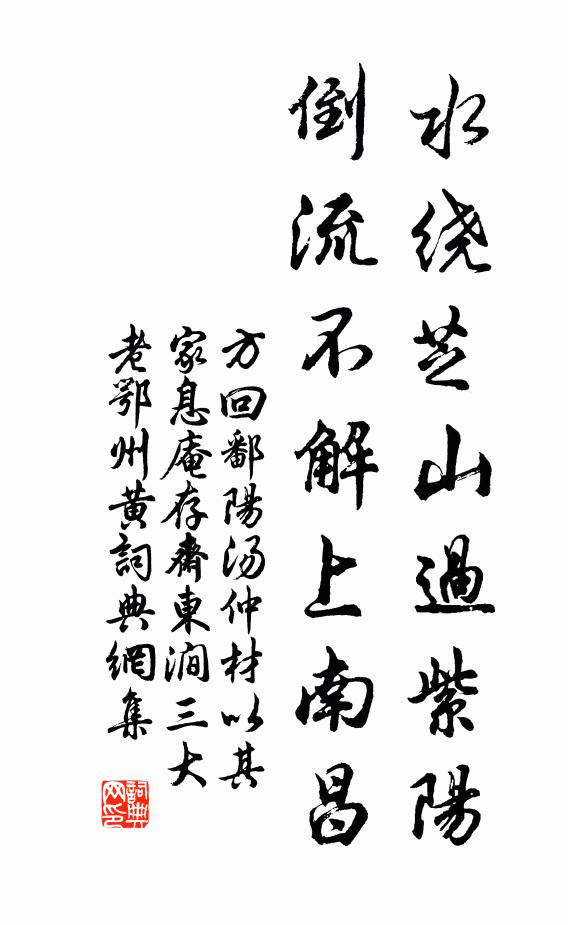 水绕芝山過紫陽
倒流不解上南昌
方回鄱陽汤仲材以其
家息庵存齋東澗三大
老鄂州黄詞典網集
詞典網印